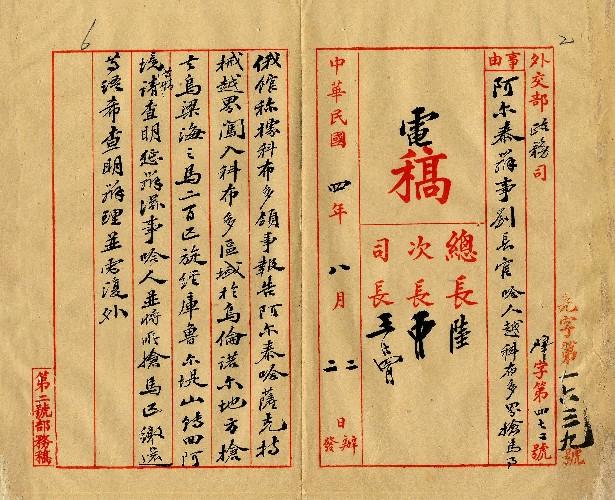 外交部 政務司
事由
阿尔泰辦事劉長官 哈人越科布多界搶馬
字第四七 號
字第一六三九號
電稿
總長 陸
次長 曹
司長 王
中華民國 四年 八月 二二 日辦發
俄館称據科布多領事報告阿尔泰哈薩克持
械越界闖入科布多區域於烏倫諾尔地方搶
去烏梁海之馬二百匹旋經庫魯尔堤山傳回阿
境請查明懲辦滋事哈人並將所搶馬匹繳還
等語希查明辦理並電復外
第二號部務稿
6
2